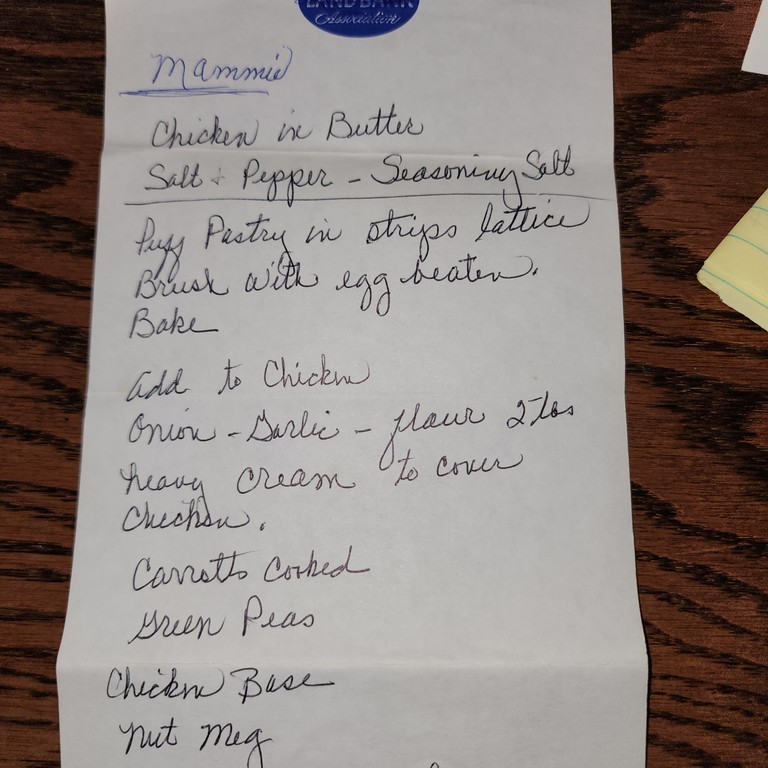 LAND BANK
Association
Mammie
Chicken in Butter
Salt + Pepper - Seasoning Salt
Puff Pastry in strips lattice
Brush with egg beaten.
Bake
add to Chicken
Onion - Garlic - flour 2 Tbs
heavy cream to cover
Chicken.
Carrotts cooked
Green Peas
Chicken Base
Nut Meg